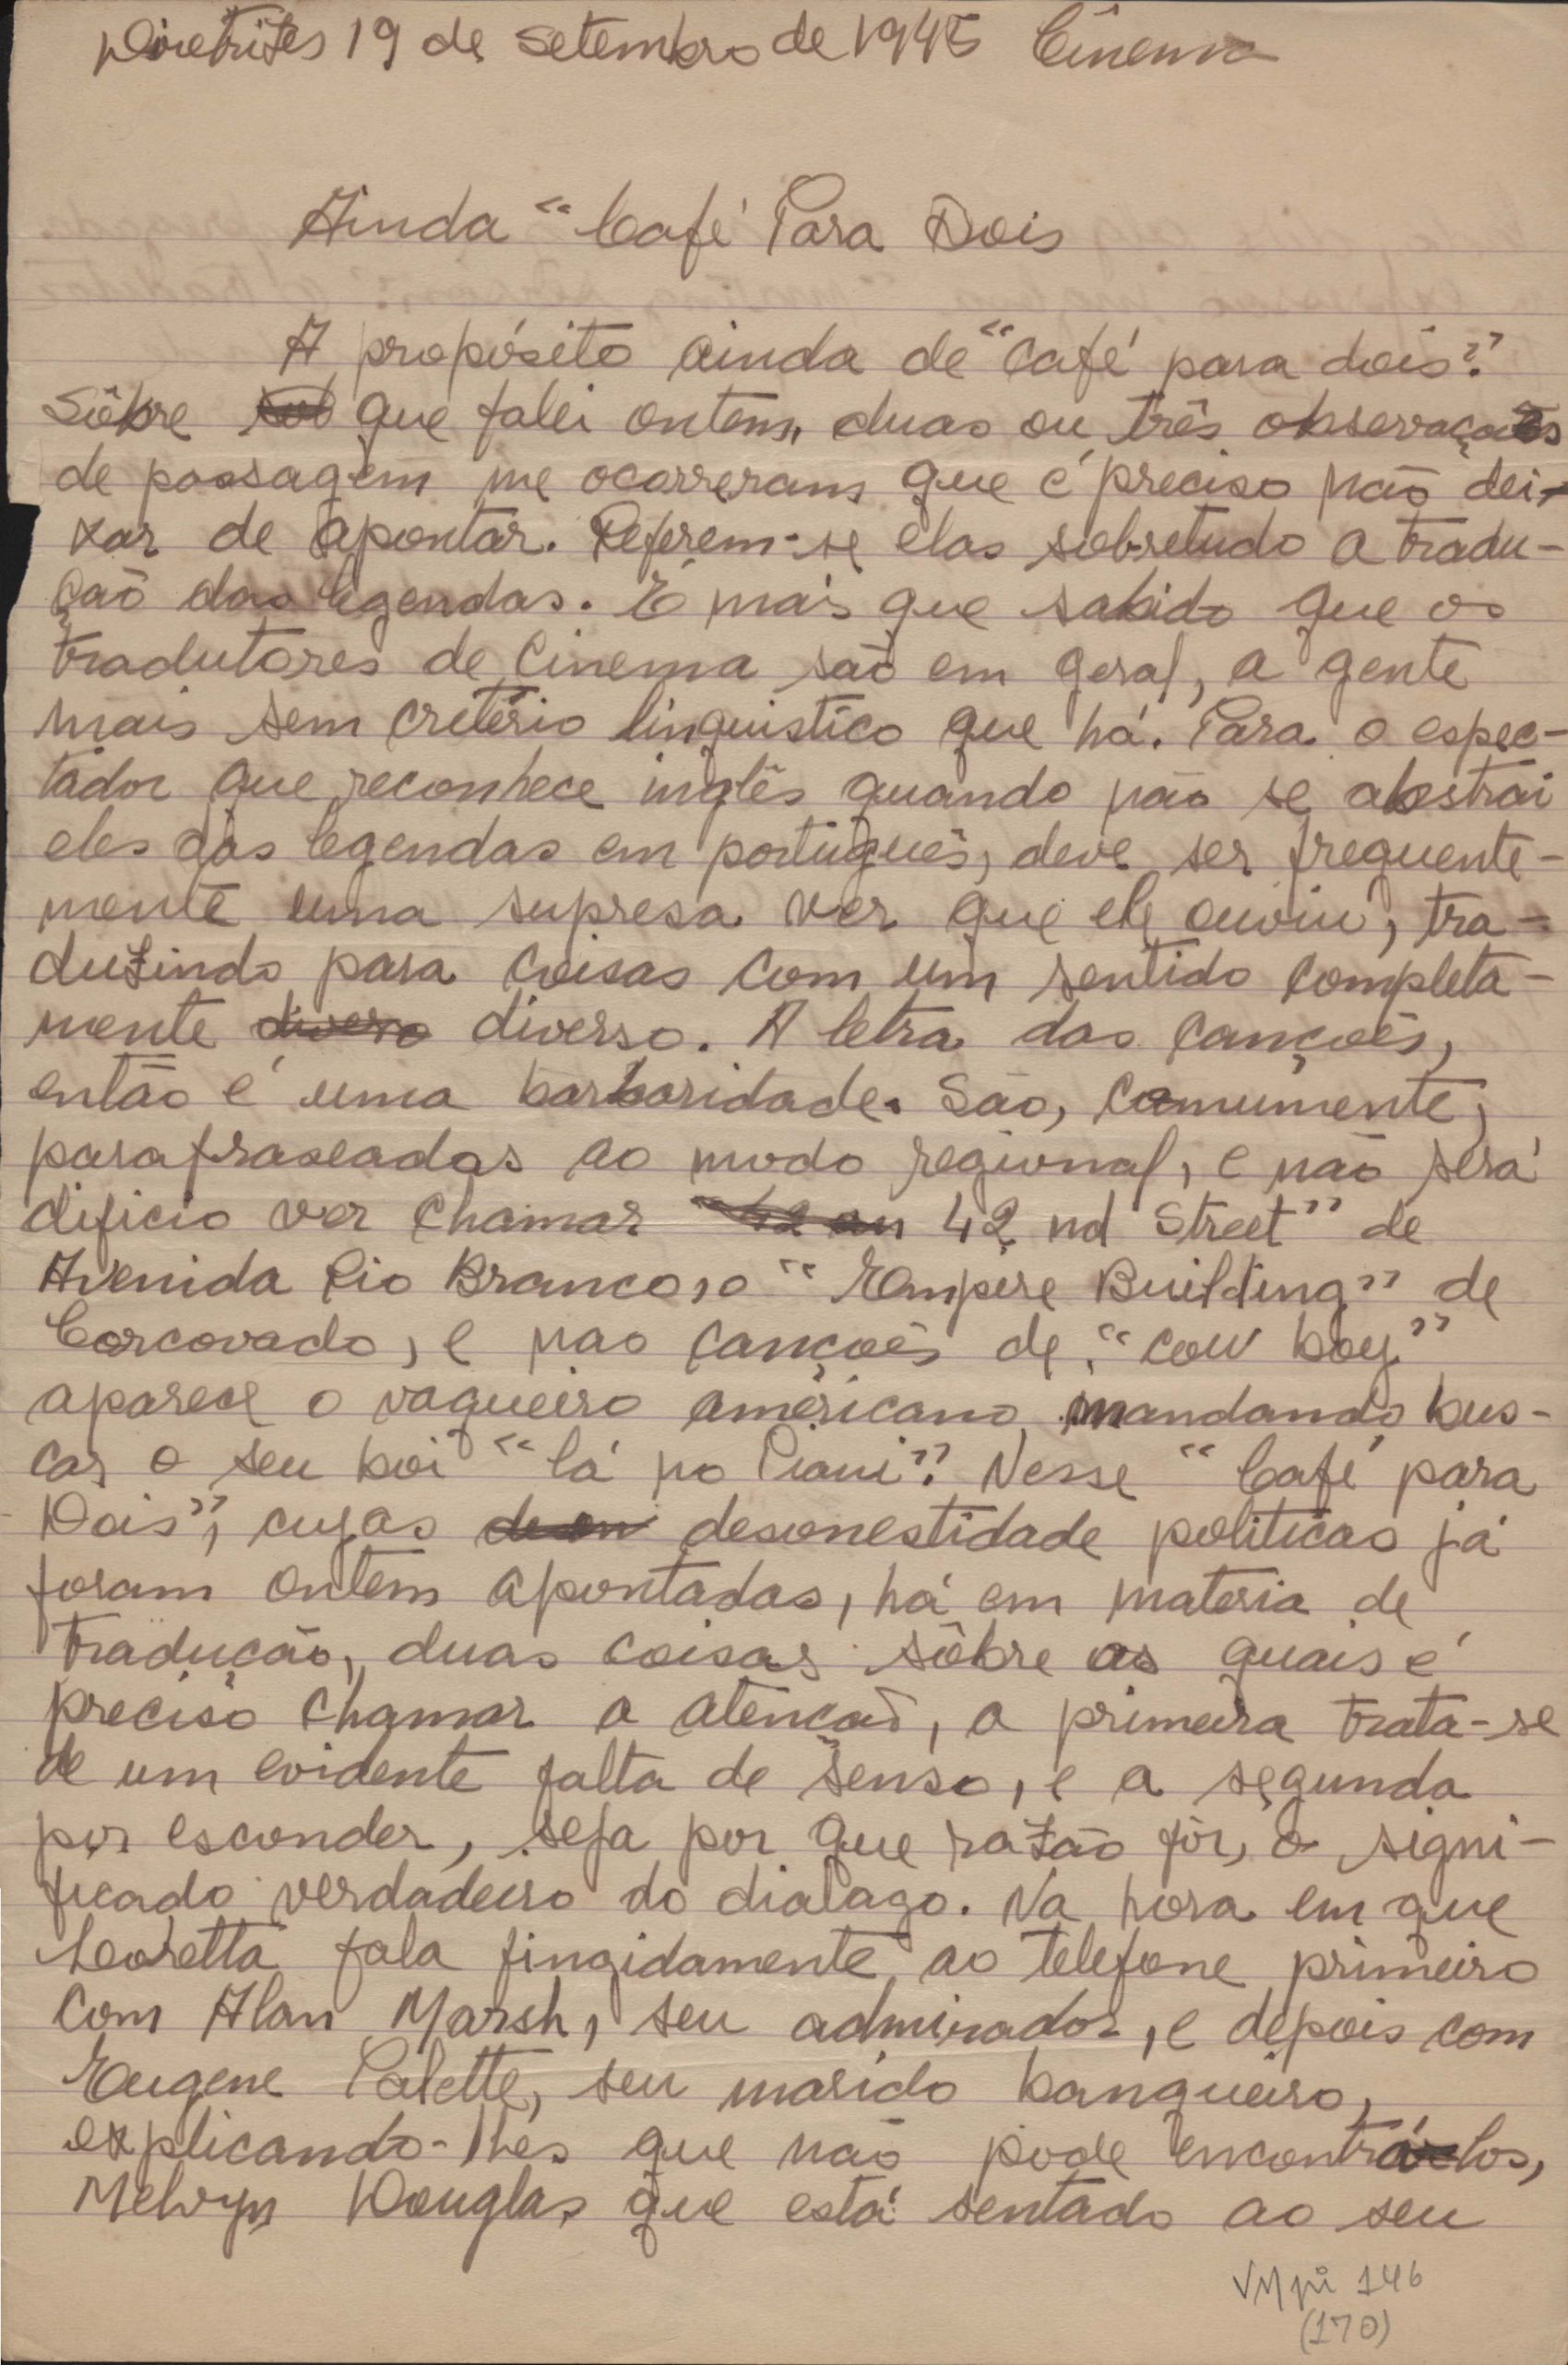 Diretrizes 19 de Setembro de 1945 Cinema
Ainda "Café Para Dois
A propósito ainda de "Café para dois".
Sôbre que falei ontem, duas ou três observações
de passagem me ocorreram que é preciso não dei-
xar de apontar. Referem-se elas sobretudo a tradu-
ção das legendas. É mais que sabido que os
tradutores de cinema são em geral, a gente
mais sem critério linguistico que há. Para o espec-
tador que reconhece inglês quando não se abstrai
eles das legendas em português, deve ser frequente-
mente uma supresa ver que ele ouviu, tra-
duzindo para coisas com um sentido completa-
mente divero diverso. A letra das canções,
então é uma barbaridade. São, comumente,
parafraseadas ao modo regional, e não será
dificio ver chamar 42 nd Street" de
Avenida Rio Branco, o "Empire Building" de
Corcovado, e nas canções de "cow boy"
aparece o vaqueiro americano mandando bus-
car o seu boi "lá no Piaui". Nesse "Café para
Dois", cujas desonestidade politicas já
foram ontem apontadas, há em materia de
tradução, duas coisas sôbre as quais é
preciso chamar a atenção, a primeira trata-se
de um evidente falta de senso, e a segunda
por esconder, seja por que razão fôr, o signi-
ficado verdadeiro do dialago. Na hora em que
Loretta fala fingidamente ao telefone primeiro
com Alan Marsh, seu admirador, e depois com
Eugene Palette, seu marido banqueiro,
explicando-lhes que não pode encontrá-los,
Melvyn Douglas que está sentado ao seu
VMpi 146
(170)